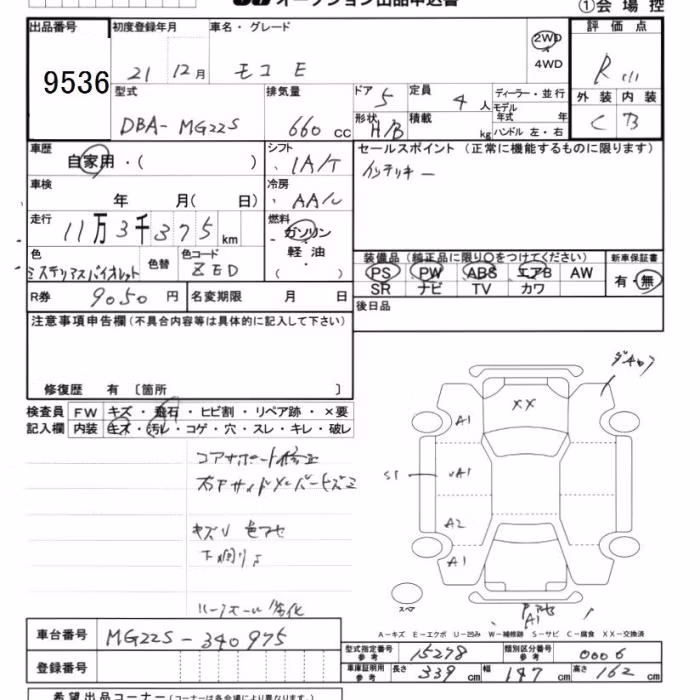 オークション出品申込書
①会場控
出品番号 初度登録年月 車名・グレード 評価点
9536 21 12月 モコ E 2WD 4WD R
型式 排気量 ドア 5 定員 4人 ディーラー・並行 外装 内装
DBA-MG22S 660cc 形状 H/B 積載 kg モデル年式 年 ハンドル 左・右 C B
車歴 自家用・( ) シフト IA/T セールスポイント(正常に機能するものに限ります)
車検 年 月( 日) 冷房 AA/C インテリキー
走行 11万3千375km 燃料 ガソリン 軽油 ( )
色 ミステリアスバイオレット 色替 色コード ZED
装備品(純正品に限り○をつけてください) 新車保証書
PS PW ABS エアB AW 有・無
SR ナビ TV カワ
R券 9050円 名変期限 月 日 後日品
注意事項申告欄(不具合内容等は具体的に記入して下さい)
修復歴 有 〔箇所 〕
検査員 FW キズ・飛石・ヒビ割・リペア跡・×要
記入欄 内装 キズ・汚レ・コゲ・穴・スレ・キレ・破レ
コアサポート修正
右Fサイドメンバーキズ
キズU 色アセ
下廻りS
ダキャフ
XX
A1
S1
A1
A2
A1
スペア
A1
A-キズ E-エクボ U-凹み W-補修跡 S-サビ C-腐食 XX-交換済
車台番号 MG22S-340975
登録番号
型式指定番号 参考 15278 類別区分番号 参考 0006
車庫証明用 参考 長さ 339cm 幅 147cm 高さ 162cm
希望出品コーナー(コーナーは各会場により異なります。)